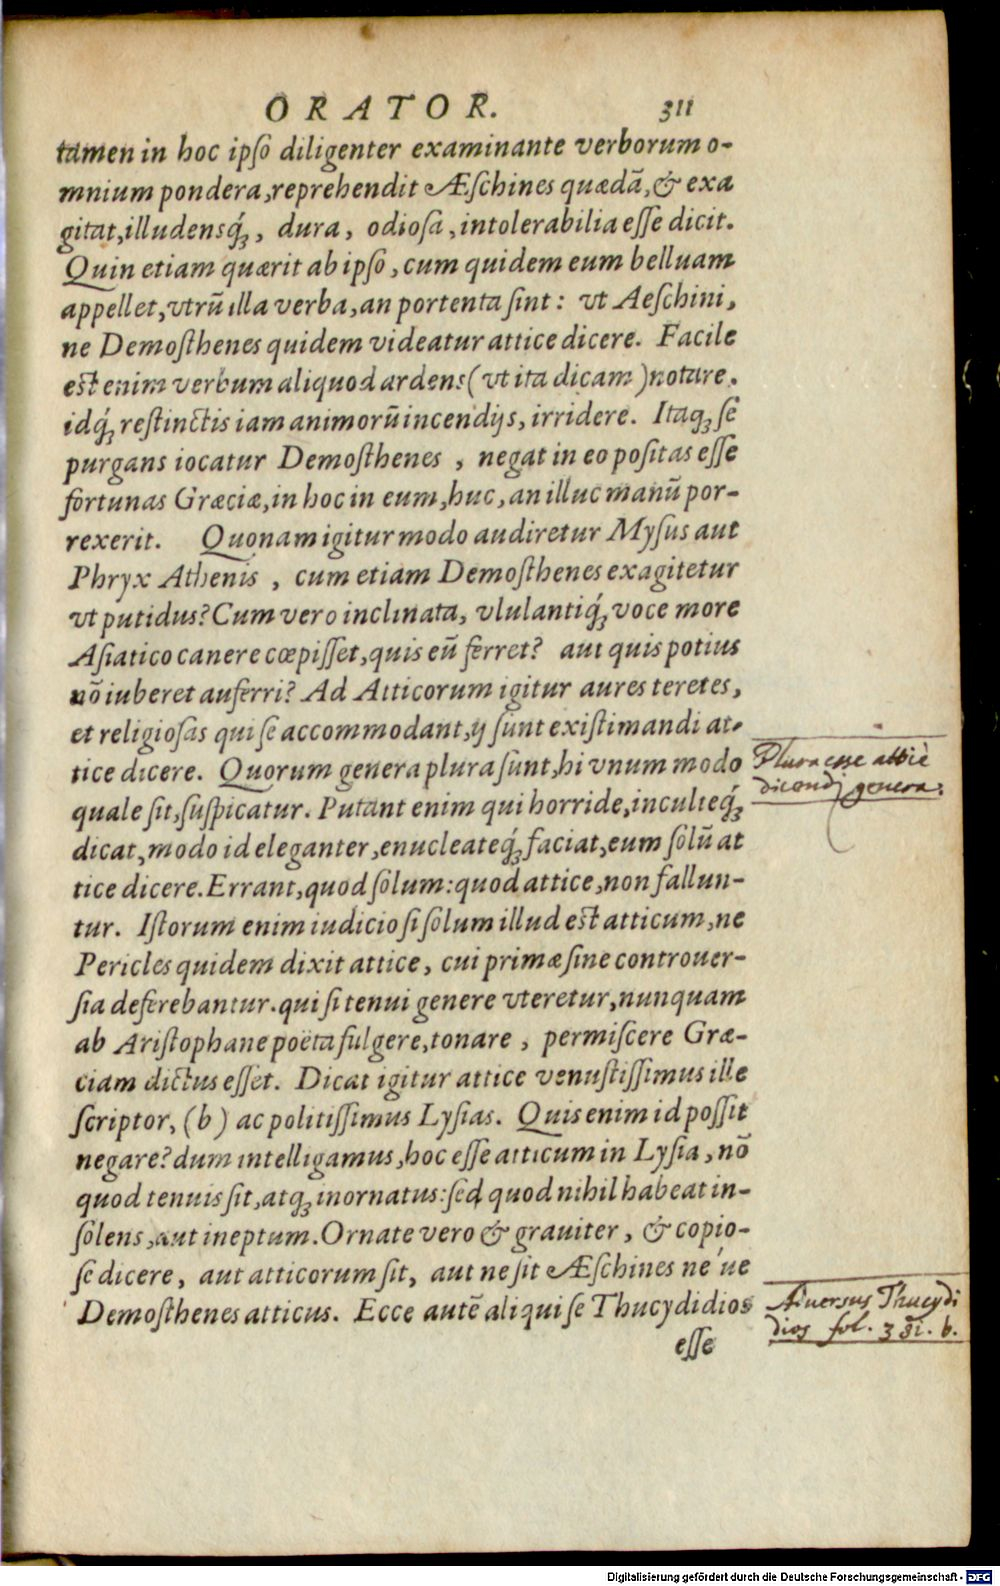 ORATOR. 311
tamen in hoc ipſo diligenter examinante verborum o-
mnium pondera, reprehendit Æſchines quædā, & exa
gitat, illudensq́;, dura, odioſa, intolerabilia eſſe dicit.
Quin etiam quærit ab ipſo, cum quidem eum belluam
appellet, vtrū illa verba, an portenta ſint: vt Aeſchini,
ne Demoſthenes quidem videatur attice dicere. Facile
eſt enim verbum aliquod ardens (vt ita dicam) notare.
idq́; reſtinctis iam animorū incendijs, irridere. Itaq; ſe
purgans iocatur Demoſthenes, negat in eo poſitas eſſe
fortunas Græciæ, in hoc in eum, huc, an illuc manū por-
rexerit. Quonam igitur modo audiretur Myſus aut
Phryx Athenis, cum etiam Demoſthenes exagitetur
vt putidus? Cum vero inclinata, vlulantiq́; voce more
Aſiatico canere cœpiſſet, quis eū ferret? aut quis potius
nō iuberet auferri? Ad Atticorum igitur aures teretes,
et religioſas qui ſe accommodant, ij ſunt exiſtimandi at-
tice dicere. Quorum genera plura ſunt, hi vnum modo
quale ſit, ſuſpicatur. Putant enim qui horride, inculteq́;
dicat, modo id eleganter, enucleateq́; faciat, eum ſolū at
tice dicere. Errant, quod ſolum: quod attice, non fallun-
tur. Iſtorum enim iudicio ſi ſolum illud eſt atticum, ne
Pericles quidem dixit attice, cui primæ ſine controuer-
ſia deferebantur. qui ſi tenui genere vteretur, nunquam
ab Ariſtophane poëta fulgere, tonare, permiſcere Græ-
ciam dictus eſſet. Dicat igitur attice venuſtiſſimus ille
ſcriptor, (b) ac politiſſimus Lyſias. Quis enim id poſſit
negare? dum intelligamus, hoc eſſe atticum in Lyſia, nō
quod tenuis ſit, atq; inornatus: ſed quod nihil habeat in-
ſolens, aut ineptum. Ornate vero & grauiter, & copio-
ſe dicere, aut atticorum ſit, aut ne ſit Æſchines ne'ue
Demoſthenes atticus. Ecce autē aliqui ſe Thucydidios
eſſe
Plura esse atticè
dicendj genera.
Aduersus Thucydi
dios fol. 331. b.
Digitalisierung gefördert durch die Deutsche Forschungsgemeinschaft - DFG